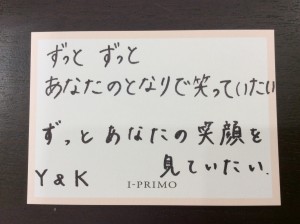 ずっと ずっと
あなたのとなりで笑っていたい
ずっとあなたの笑顔を
見ていたい.
Y & K
I-PRIMO